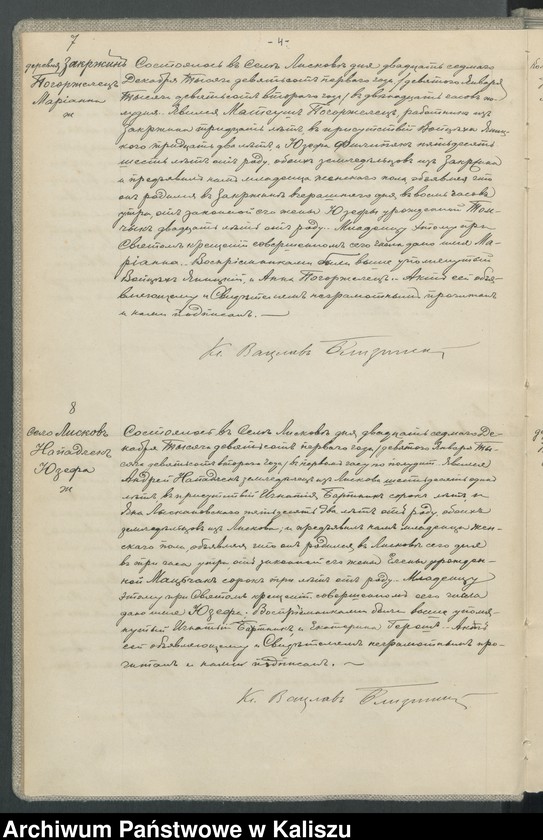 -4-
7
деревня Закржинъ
Погоржелецъ
Маріанна
ж
Состоялось въ Селѣ Лисковѣ дня двадцать седьмаго
Декабря Тысяча девятьсотъ перваго года /девятаго Января
Тысяча девятьсотъ втораго года/ въ двѣнадцать часовъ по
лудня. Явился Матеушъ Погоржелецъ, работникъ изъ
Закржина тридцать лѣтъ, въ присутствіи Войцѣха
кого тридцать два лѣтъ и Юзефа пятьдесятъ
шесть лѣтъ отъ роду, обоихъ земледѣльцевъ изъ Закржина
и предъявилъ намъ младенца женскаго пола, объявляя что
онъ родился въ Закржинѣ вчерашняго дня, въ восемь часовъ
утра, отъ законной его жены Юзефы урожденной
двадцать лѣтъ отъ роду. Младенцу этому при
Святомъ крещеніи совершенномъ сего числа дано имя Ма-
ріанна. Воспріемниками были выше упомянутый
Войцѣхъ и Анна Погоржелецъ. Актъ сей объя-
вляющему и Свидѣтелямъ неграмотнымъ прочитанъ
и нами подписанъ.
Кс. Вацлавъ
8
село Лисковъ
Нападленъ
Юзефа
ж
Состоялось въ Селѣ Лисковѣ дня двадцать седьмаго Де-
кабря Тысяча девятьсотъ перваго года /девятаго Января Ты-
сяча девятьсотъ втораго года/ въ первомъ часу по полудни. Явился
Андрей земледѣлецъ изъ Лискова шестьдесятъ одинъ
лѣтъ въ присутствіи Игнатія Бартникъ сорокъ лѣтъ и
Яна пятьдесятъ два лѣтъ отъ роду, обоихъ
земледѣльцевъ изъ Лискова, и предъявилъ намъ младенца жен-
скаго пола, объявляя что онъ родился въ Лисковѣ сего дня
въ три часа утра отъ законной его жены урожден-
ной сорокъ три лѣтъ отъ роду. Младенцу
этому при Святомъ крещеніи совершенномъ сего числа
дано имя Юзефа. Воспріемниками были выше упомя-
нутый Игнатій Бартникъ и Екатерина. Актъ
сей объявляющему и Свидѣтелямъ неграмотнымъ про-
читанъ и нами подписанъ.
Кс. Вацлавъ
Archiwum Państwowe w Kaliszu